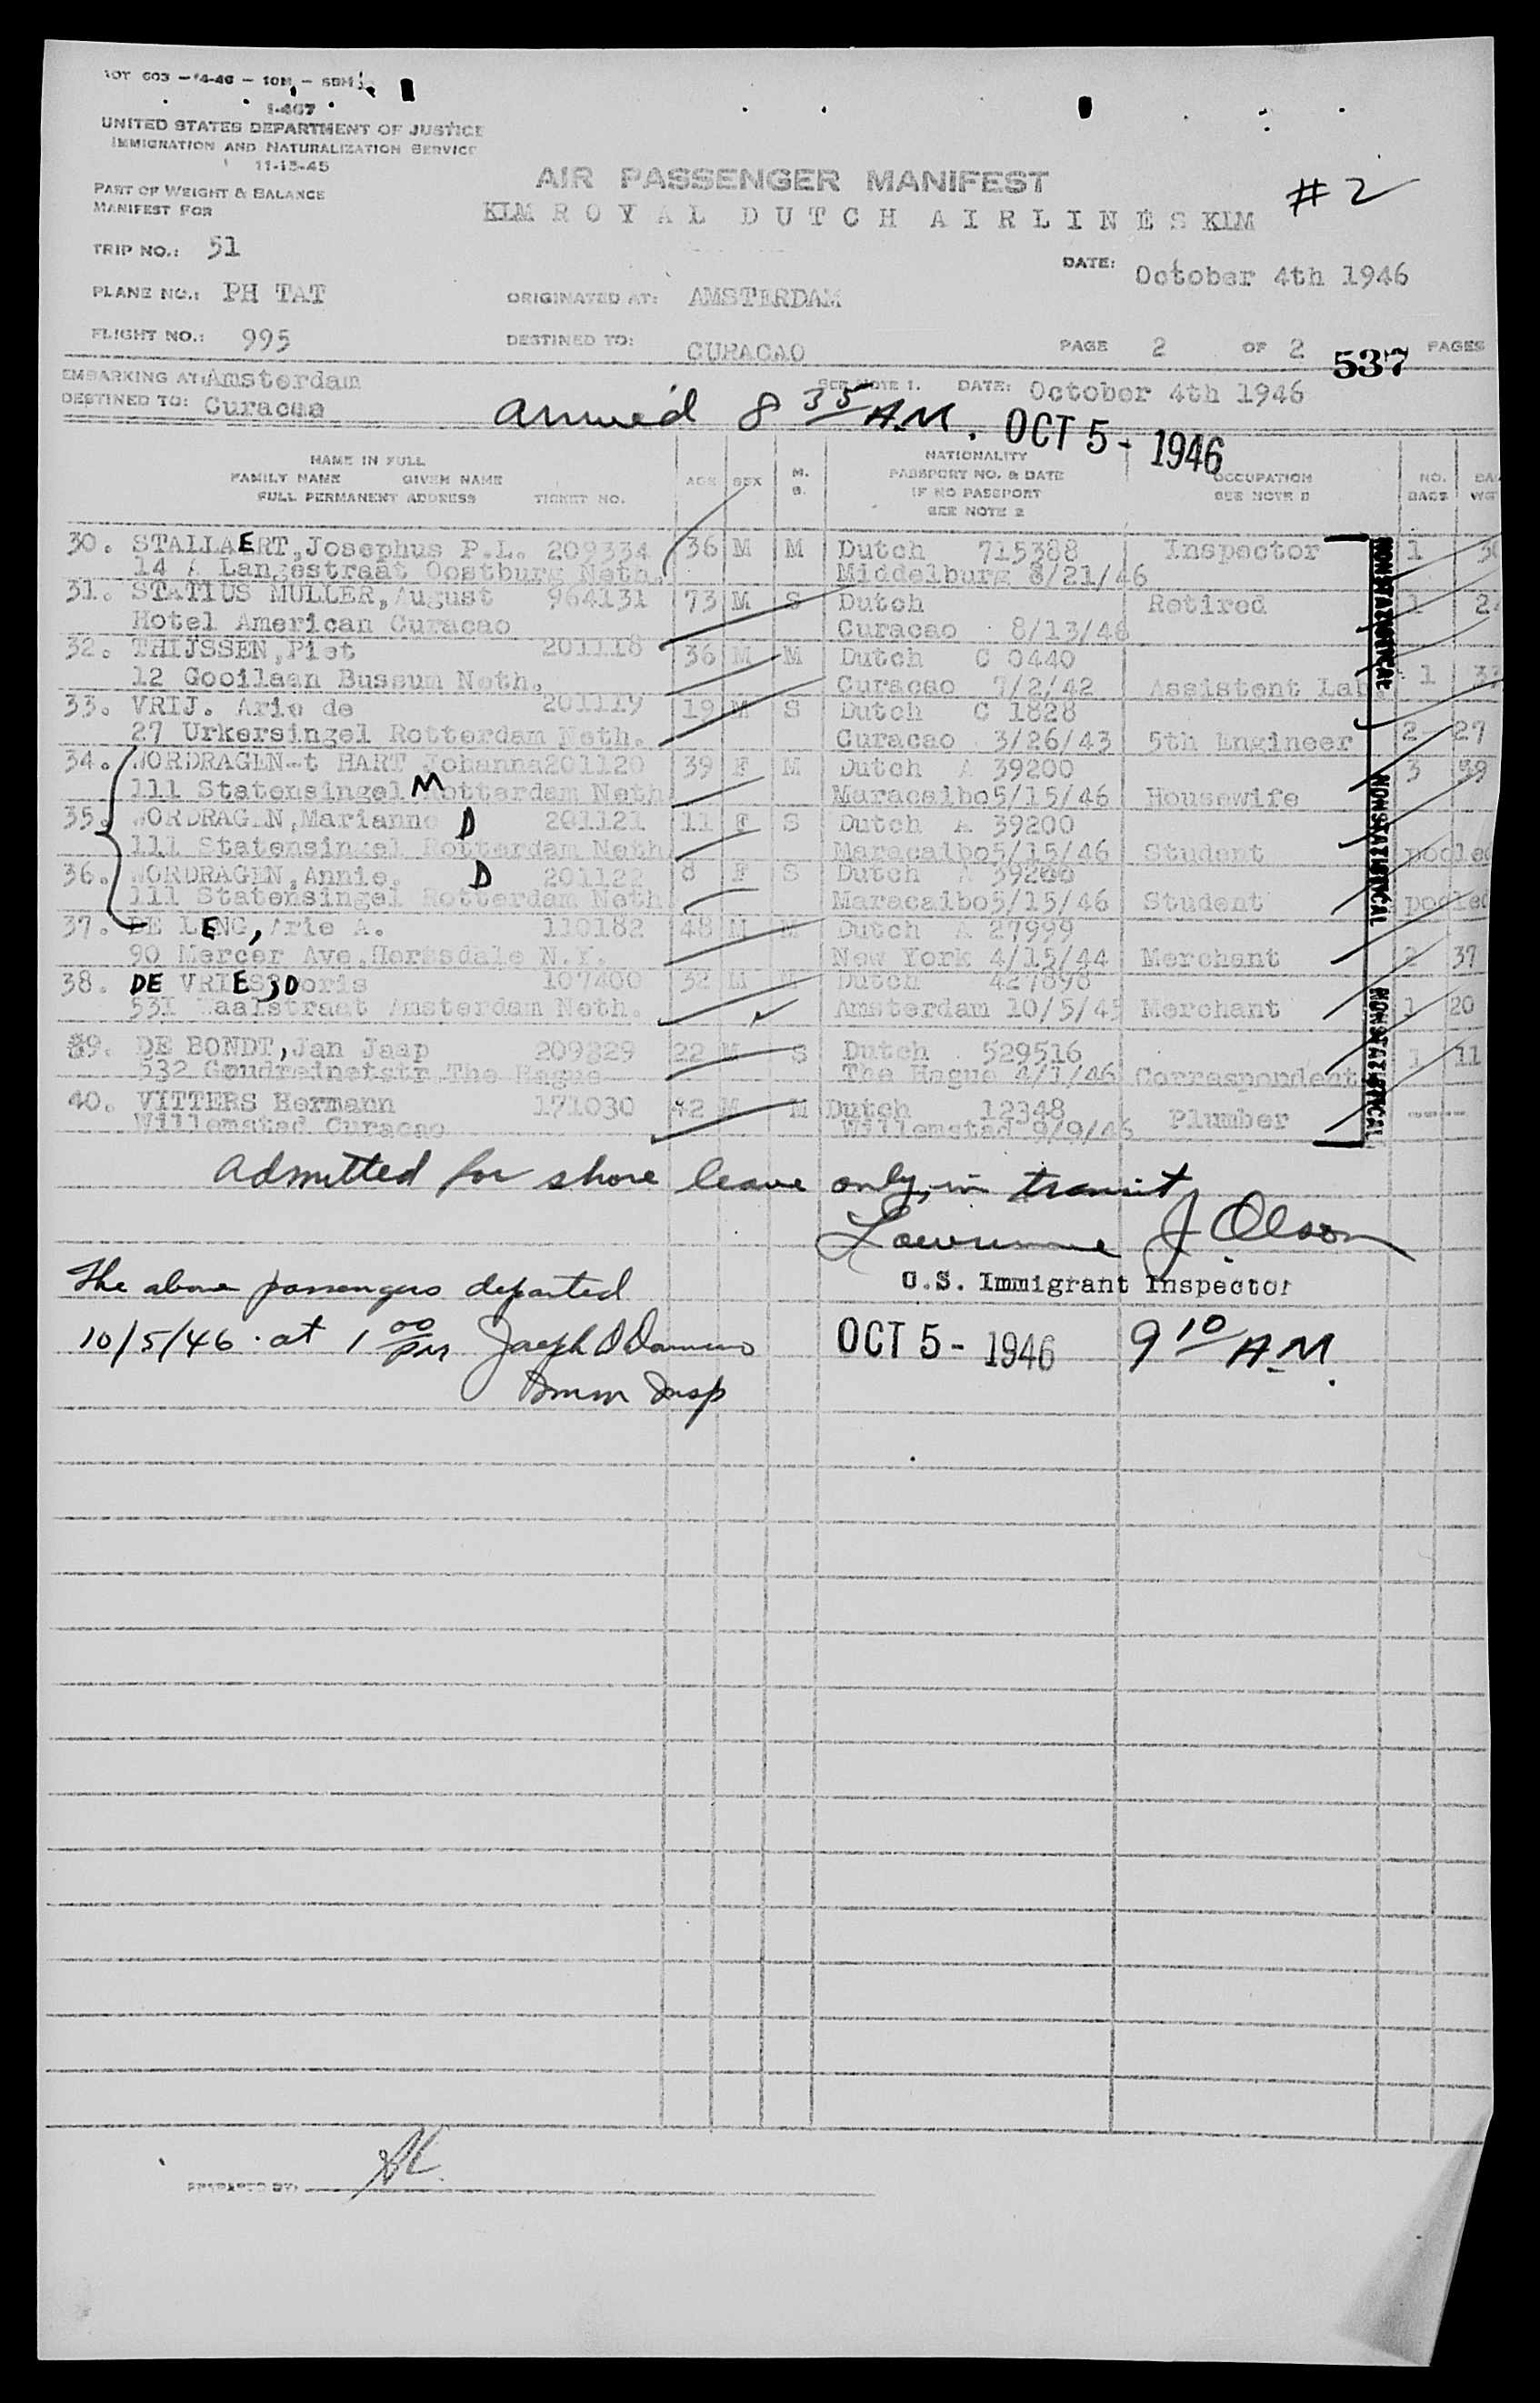 I-467
UNITED STATES DEPARTMENT OF JUSTICE
IMMIGRATION AND NATURALIZATION SERVICE
11-15-45
PART OF WEIGHT & BALANCE
MANIFEST FOR
AIR PASSENGER MANIFEST
# 2
KLM ROYAL DUTCH AIRLINES KLM
TRIP NO.: 51
DATE: October 4th 1946
PLANE NO.: PH TAT ORIGINATED AT: AMSTERDAM
FLIGHT NO.: 995 DESTINED TO: CURACAO PAGE 2 OF 2 PAGES
537
EMBARKING AT: Amsterdam SEE NOTE 1. DATE: October 4th 1946
DESTINED TO: Curacaa
arrived 8 35 A.M. OCT 5 - 1946
NAME IN FULL
FAMILY NAME GIVEN NAME
FULL PERMANENT ADDRESS TICKET NO. AGE SEX M. S.
NATIONALITY
PASSPORT NO. & DATE
IF NO PASSPORT
SEE NOTE 2
OCCUPATION
SEE NOTE
NO. BAGS
30. STALLAERT, Josephus P.L. 209334 36 M M Dutch 715388 Inspector 1
14 A Langestraat Oostburg Neth. Middelburg 8/21/46
31. STATIUS MULLER, August 964131 73 M S Dutch Retired 1
Hotel American Curacao Curacao 8/13/46
32. THIJSSEN, Piet 201118 36 M M Dutch C 0440
12 Gooilaan Bussum Neth. Curacao 7/2/42 Assistent Lab. 1
33. VRIJ. Arie de 201119 19 M S Dutch C 1828
27 Urkersingel Rotterdam Neth. Curacao 3/26/43 5th Engineer 2 27
34. WORDRAGEN-t HART Johanna 201120 39 F M Dutch A 39200 3 39
111 Statensingel M Rotterdam Neth Maracaibo 5/15/46 Housewife
35. WORDRAGEN, Marianne D 201121 11 F S Dutch A 39200
111 Statensingel Rotterdam Neth Maracaibo 5/15/46 Student pooled
36. WORDRAGEN, Annie. D 201122 8 F S Dutch A 39200
111 Statensingel Rotterdam Neth Maracaibo 5/15/46 Student pooled
37. DE LENG, Arie A. 110182 48 M M Dutch A 27999
90 Mercer Ave, Hartsdale N.Y. New York 4/15/44 Merchant 2 37
38. DE VRIES, Doris 107400 32 M M Dutch 427898
531 Maalstraat Amsterdam Neth. Amsterdam 10/5/45 Merchant 1 20
39. DE BONDT, Jan Jaap 209829 22 M S Dutch 529516 1 11
532 Goudreinetstr The Hague The Hague 4/1/46 Correspondent
40. VITTERS Hermann 171030 42 M M Dutch 12348 Plumber
Willemstad Curacao Willemstad 9/9/46
NONSTATISTICAL
NONSTATISTICAL
NONSTATISTICAL
Admitted for shore leave only, in transit
Lawrence J. Olson
U.S. Immigrant Inspector
The above passengers departed
10/5/46 at 1 00 PM Joseph
OCT 5 - 1946 9 10 A.M.
Imm Insp
PREPARED BY: